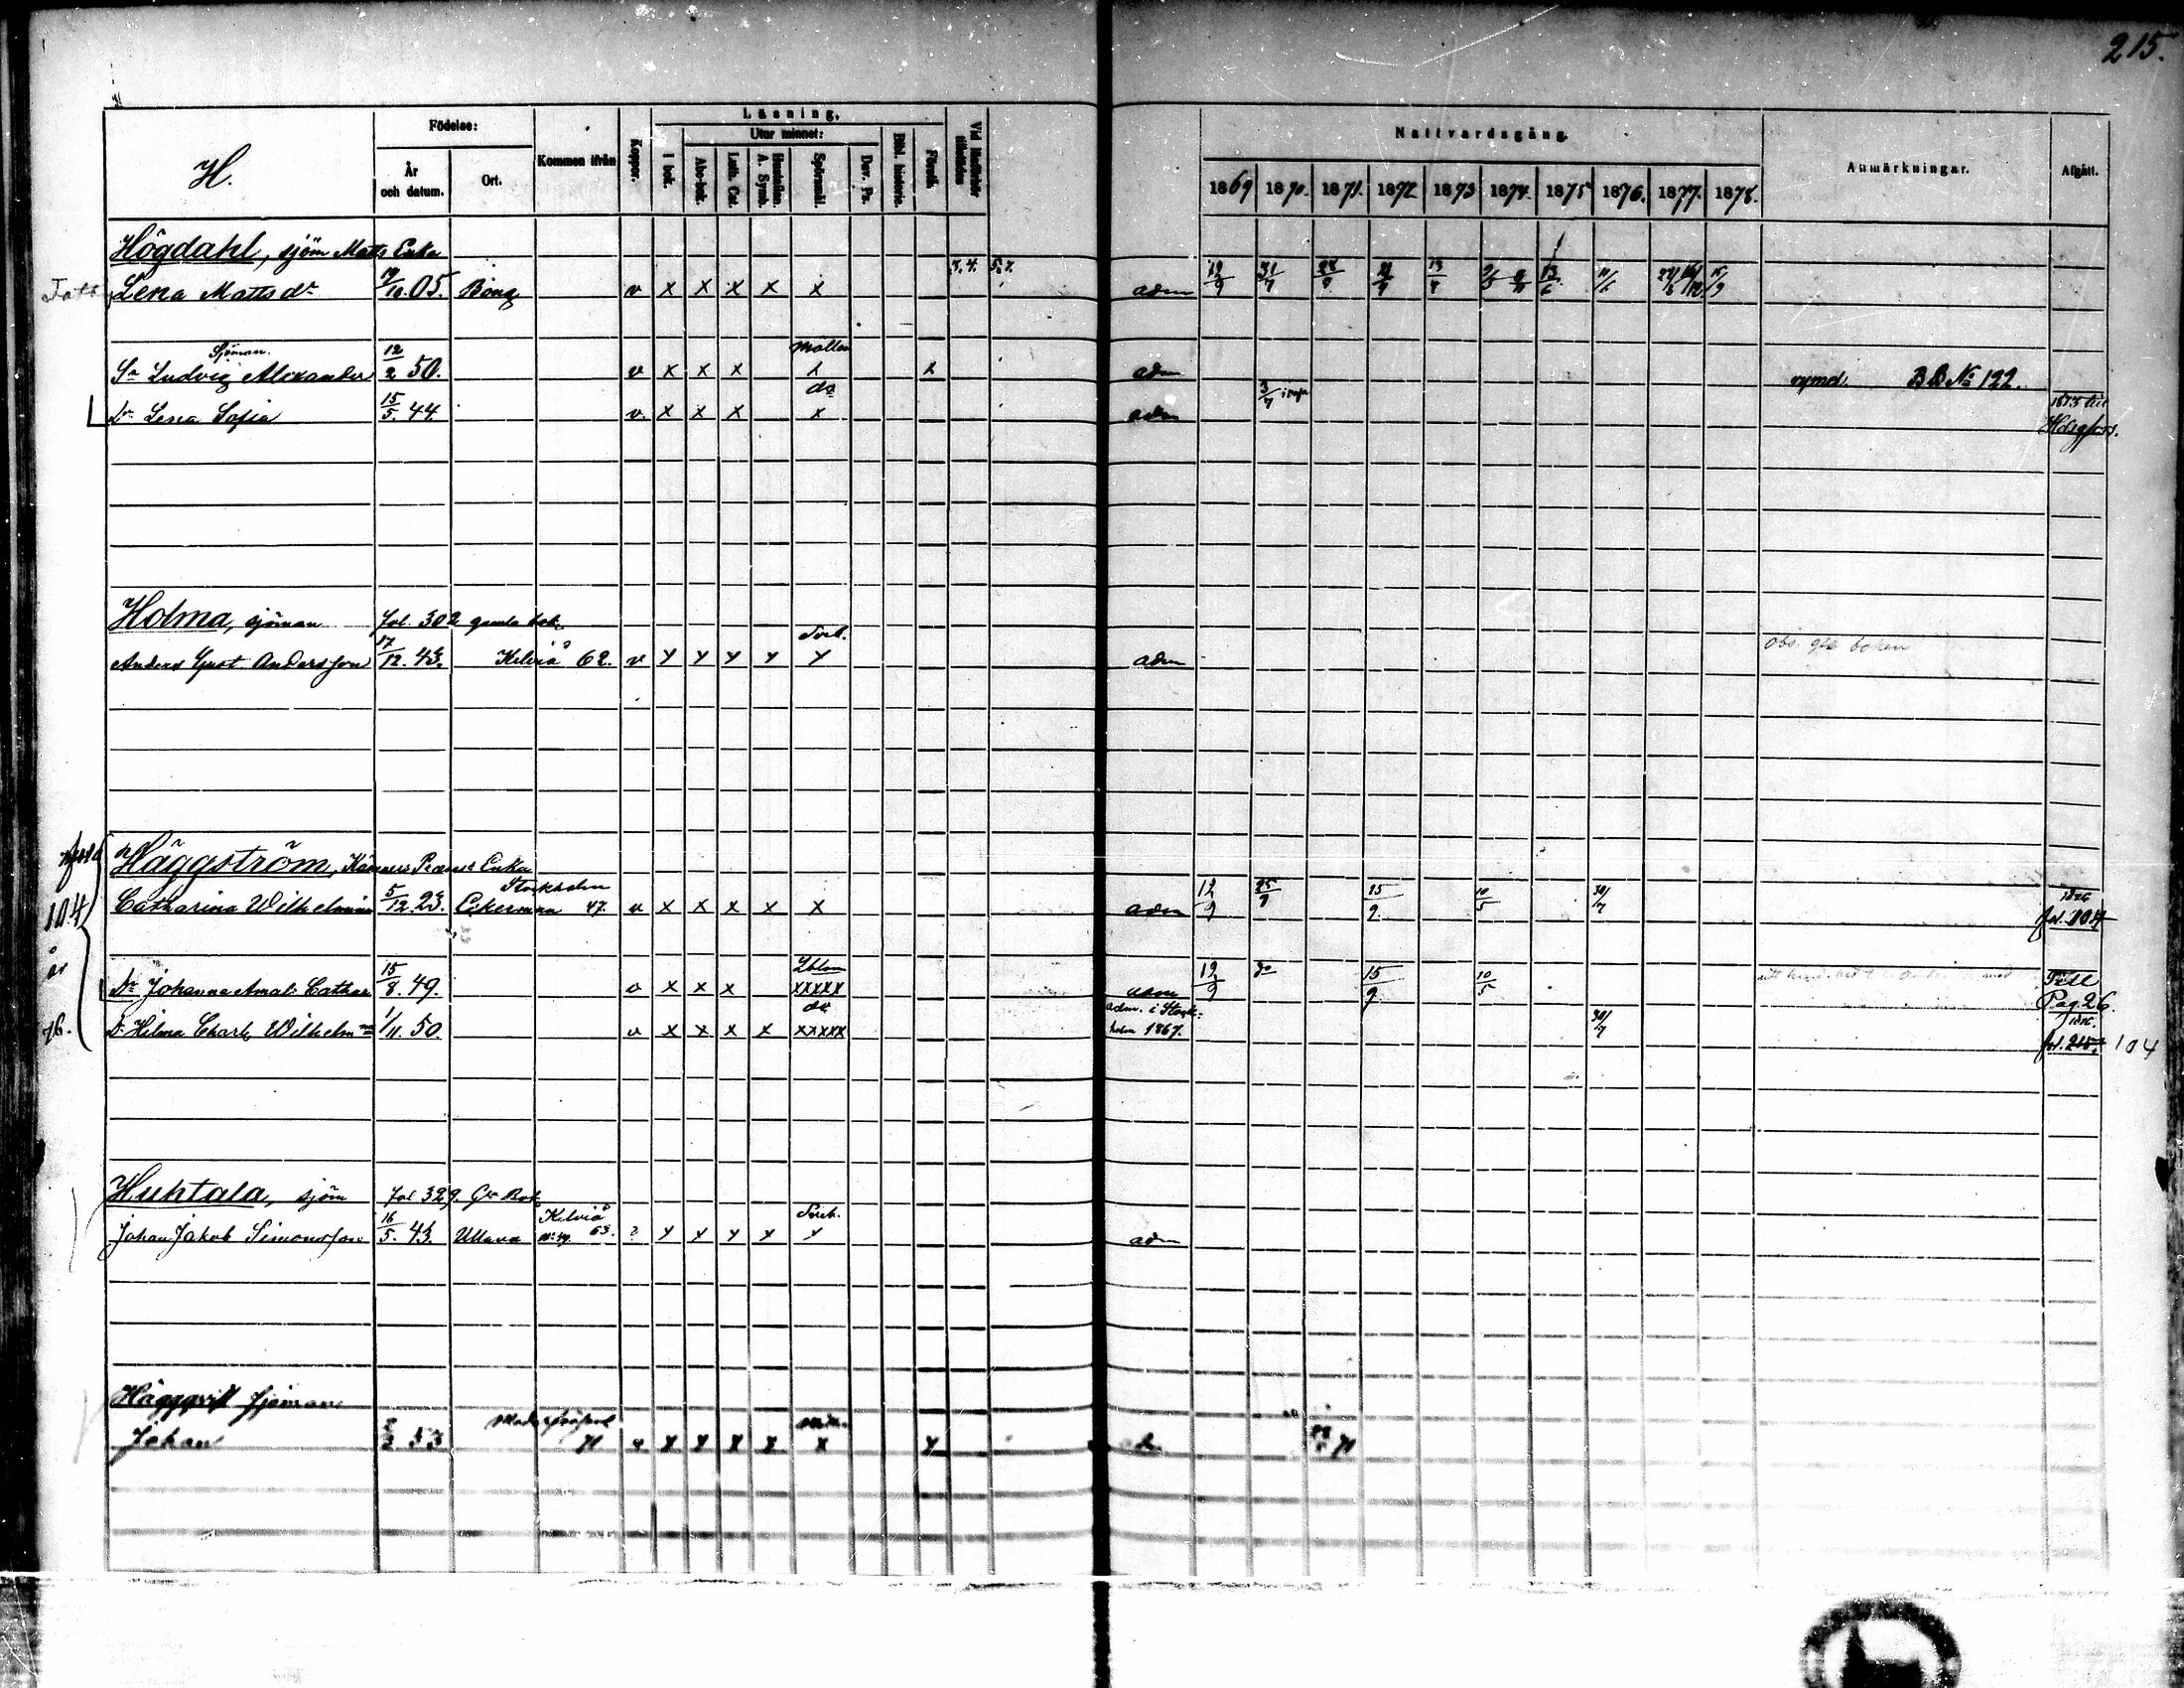 215.
H.
Födelse:
År och datum.
Ort.
Kommen ifrån
Koppor.
Läsning.
I bok.
Utur minnet:
Abc-bok.
Luth. Cat.
Hustaflan. A. Symb.
Spörsmål.
Dav. Ps.
Bibl. historie.
Förstå.
Vid läsförhör tillstädes
Nattvardsgång.
1869 1870. 1871. 1872 1873 1874. 1875 1876. 1877. 1878.
Anmärkningar.
Afgått.
Högdahl, sjöm Matts Enka
Lena Matts dr 05. v x x x x x 3. 4. 5. 7. adm 12/9 31/7 11/6 15/9
Sjöman.
Sn Ludvig Alexander 12/2 50. v x x x adm rymd. BB No 122.
Dr Lena Sofia 15/5. 44 v. x x x do x adm 3/7 1873 till Hdsgfors.
Holma, sjöman Fol. 302 gamla bok.
Anders Gust. Andersson 17/12. 43. Kelviå 62. v x x x x x adm obs. gla boken
Häggström, Enka
Catharina Wilhelmina 5/12. 23. Stockholm 47. v x x x x x adm 12/9 25/9 15/9. 10/5 30/7 1876 fol. 104
104 år 76.
Dr Johanna Amal. Cathar 15/8. 49. v x x x xxxxx adm 12/9 do 15/9 10/5 Till Pag 26.
Dr Hilma Charl. Wilhelm 1/11. 50. v x x x x do xxxxx adm. i Stockholm 1867. 30/7 1876. fol. 215. 104
Huhtala, sjöm Fol 329. Gla Bok
Johan Jakob Simonsson 16/5. 43. Ullava Kelviå 63. ? x x x x x adm
Häggqvist Sjöman
Johan 53 71 v x x x x x x 71